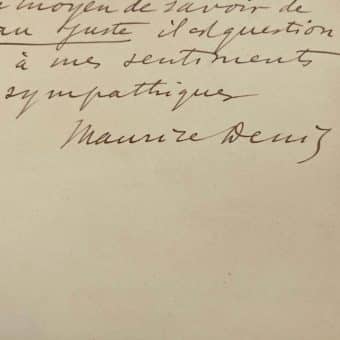 moyen de savoir de
au juste il est question
à mes sentiments
sympathiques
Maurice Denis